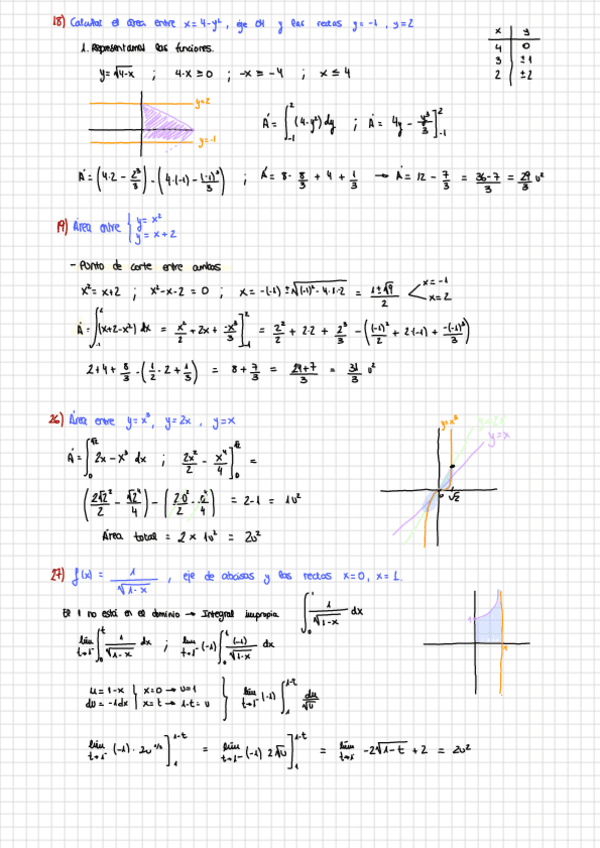 18) Calcular el área entre x = 4-y², eje OY y las rectas y = -1, y = 2
x y
4 0
3 ±1
2 ±2
1. Representamos las funciones.
y = √4-x ; 4-x ≥ 0 ; -x ≥ -4 ; x ≤ 4
y=2
y=-1
A = ∫₋₁² (4-y²) dy ; A = 4y - y³/3 ]₋₁²
A = (4·2 - 2³/3) - (4·(-1) - (-1)³/3) ; A = 8 - 8/3 + 4 + 1/3 → A = 12 - 7/3 = 36-7/3 = 29/3 u²
19) Área entre { y = x²
y = x+2
- Punto de corte entre ambas
x² = x+2 ; x²-x-2 = 0 ; x = -(-1) ± √(-1)² - 4·1·-2 = 1±√9/2 < x = -1
x = 2
A = ∫₋₁² (x+2-x²) dx = x²/2 + 2x + -x³/3 ]₋₁² = 2²/2 + 2·2 + 2³/3 - ((-1)²/2 + 2(-1) + -(-1)³/3)
2+4+ 8/3 - (1/2 - 2 + 1/3) = 8 + 7/3 = 24+7/3 = 31/3 u²
26) Área entre y = x³, y = 2x, y = x
y=x³
y=2x
y=x
√2
A = ∫₀^√2 2x - x³ dx ; 2x²/2 - x⁴/4 ]₀^√2 =
(2√2²/2 - √2⁴/4) - (2·0²/2 - 0⁴/4) = 2-1 = 1u²
Área total = 2 × 1u² = 2u²
27) f(x) = 1/√1-x , eje de abcisas y las rectas x=0, x=1.
El 1 no está en el dominio → Integral impropia ∫₀¹ 1/√1-x dx
lim t→1⁻ ∫₀ᵗ 1/√1-x dx ; lim t→1⁻ (-1) ∫₀ᵗ (-1)/√1-x dx
u = 1-x } x=0 → u=1 } lim t→1⁻ (-1) ∫₁^1-t du/√u
du = -1dx } x=t → 1-t = u
lim t→1⁻ (-1) · 2u^1/2 ]₁^1-t = lim t→1⁻ (-1) 2√u ]₁^1-t = lim t→1 -2√1-t + 2 = 2u²